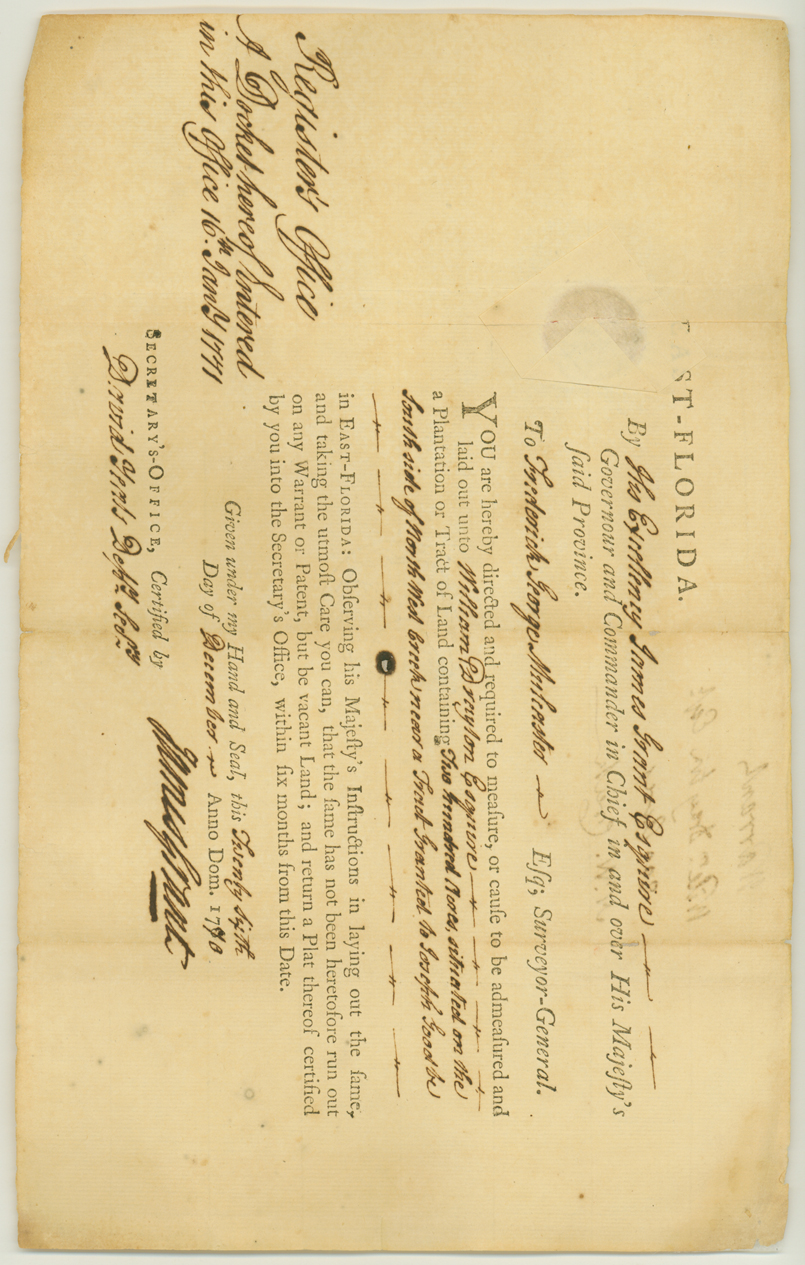 ST-FLORIDA.
By His Excellency James Grant Esquire
Governour and Commander in Chief in and over His Majeſty's
ſaid Province.
To Frederick George Mulcaster Eſq; Surveyor-General.
YOU are hereby directed and required to meaſure, or cauſe to be admeaſured and
laid out unto William Drayton Esquire
a Plantation or Tract of Land containing Two hundred Acres, situated on the
South side of North West Creek, near a Tract Granted to Joseph
in EAST-FLORIDA: Obſerving his Majeſty's Inſtructions in laying out the ſame,
and taking the utmoſt Care you can, that the ſame has not been heretofore run out
on any Warrant or Patent, but be vacant Land; and return a Plat thereof certified
by you into the Secretary's Office, within ſix months from this Date.
Given under my Hand and Seal, this Twenty sixth
Day of December Anno Dom. 1770
James Grant
SECRETARY'S-OFFICE, Certified by
David Yeats Depy. Secry.
Register's Office
A Docket hereof Entered
in this Office 16th. Jany 1771